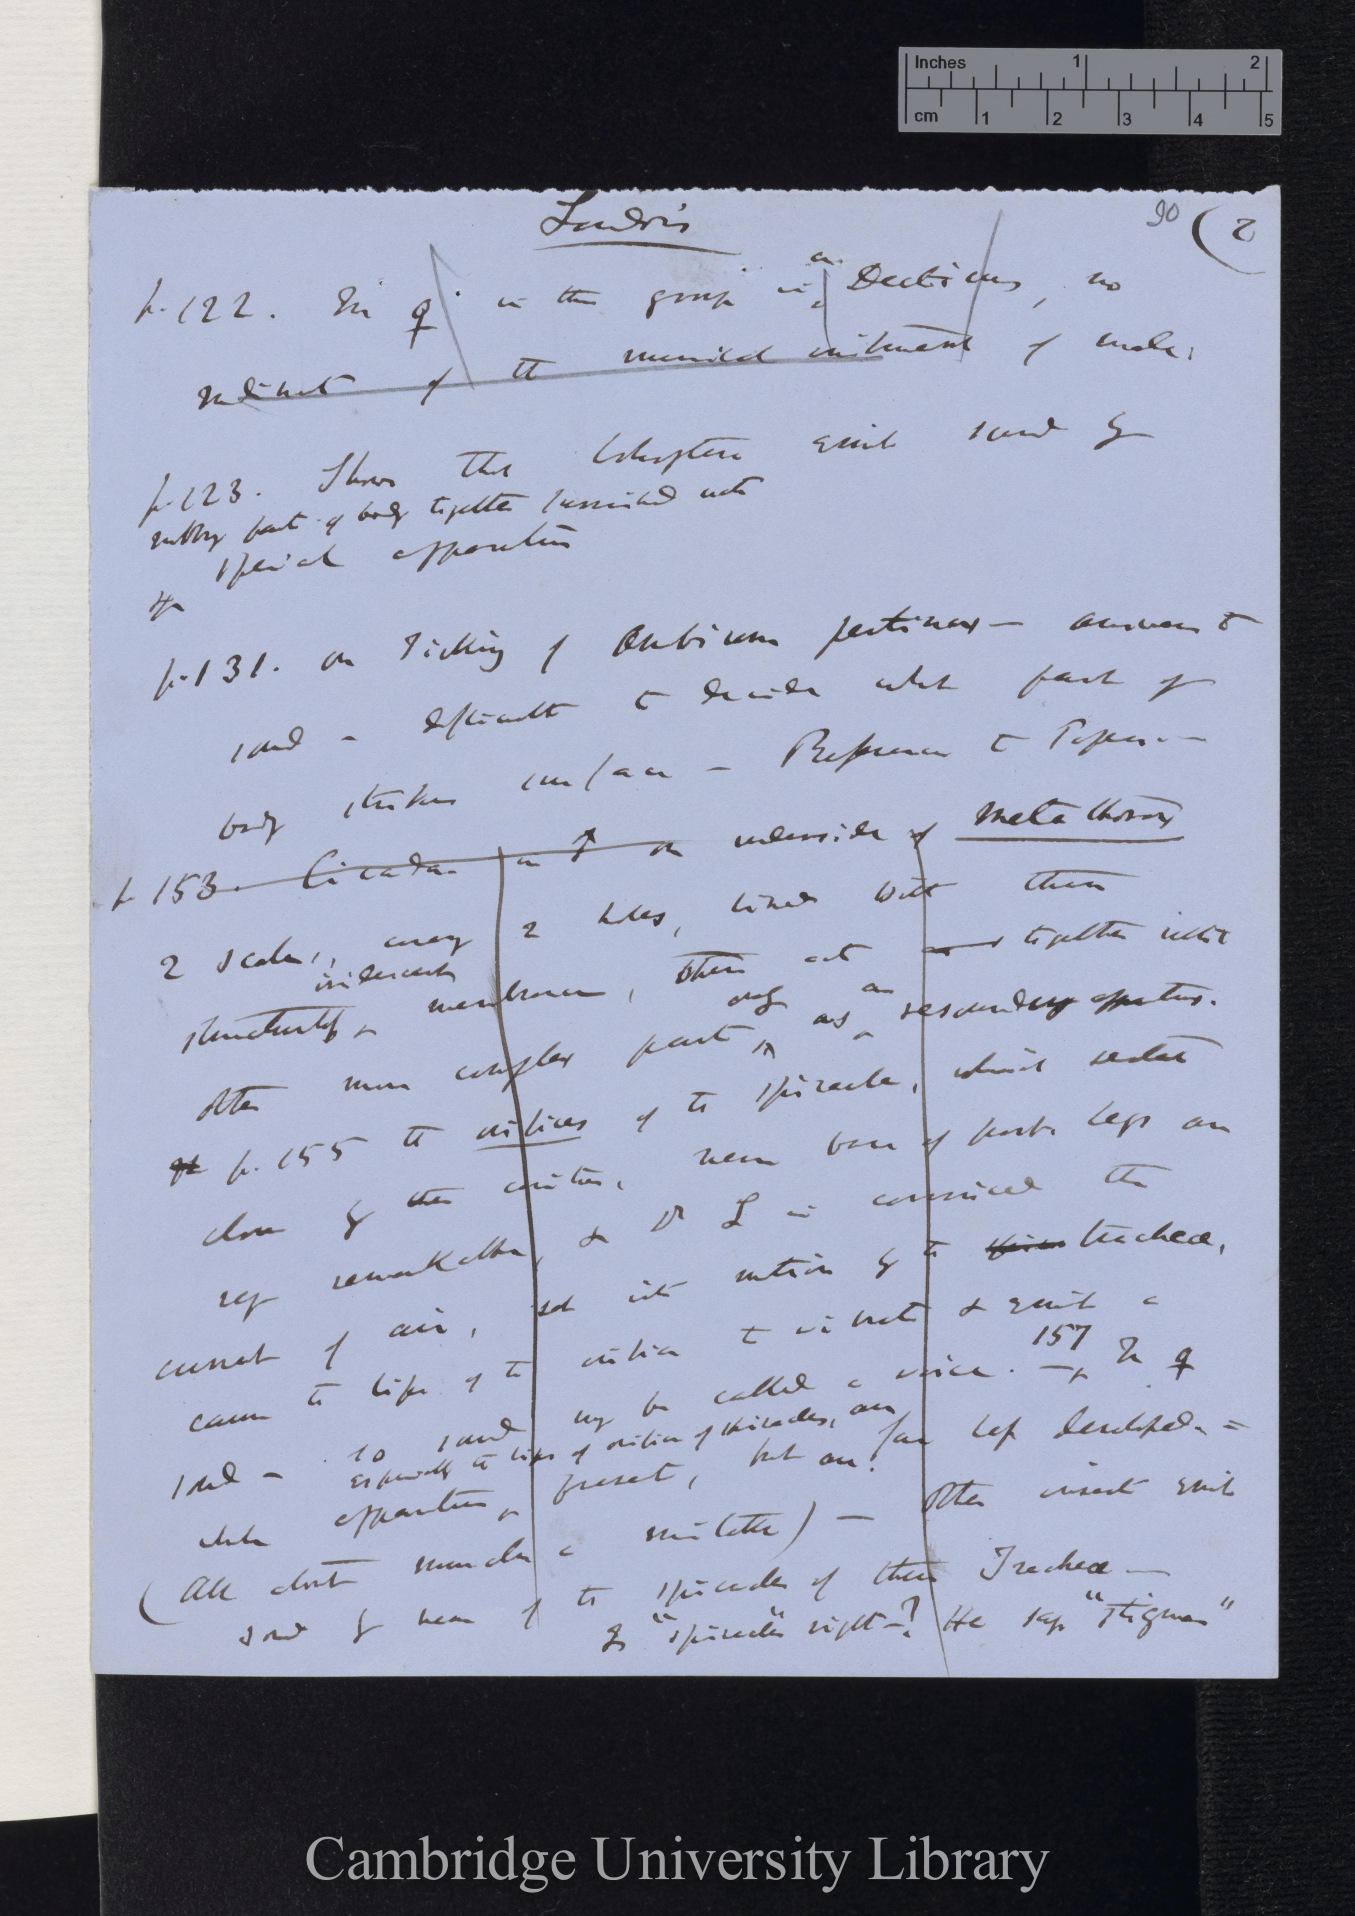 Inches 1 2
cm 1 2 3 4 5
Landois
90 (2
p. 122. In ♀ in this group in a Decticus, no
rudiment of the musical instrument of male.
p. 123. Shows that Coleoptera emit sound by
rubbing parts of body together furnished with
special apparatus
p. 131. on Ticking of Anobium pertinax — answers to
sound — difficult to decide what part of
body strikes surface — Reference to Papers —
p 153. Cicada in ♂ on underside of Metathorax
2 scales, cavity 2 holes, lined with thin
iridescent
structureless membrane, these act together with
other more complex parts only as a resounding apparatus.
p. 155 the orifices of the spiracles, which seated
close by these cavities, near base of post. legs are
very remarkable, & Dr L is convinced the
current of air, set into motion by the tracheæ,
cause the lips of the orifice to vibrate & emit a
157
sound — so sound may be called a voice. — In ♀
especially the lips of orifice of spiracles, are
whole apparatus present, but are far less developed =
(All about muscles a mistake) — Other insects emit
sound by means of the spiracles of their Tracheæ —
Is "spiracles" right —? He says "Stigmen"
Cambridge University Library